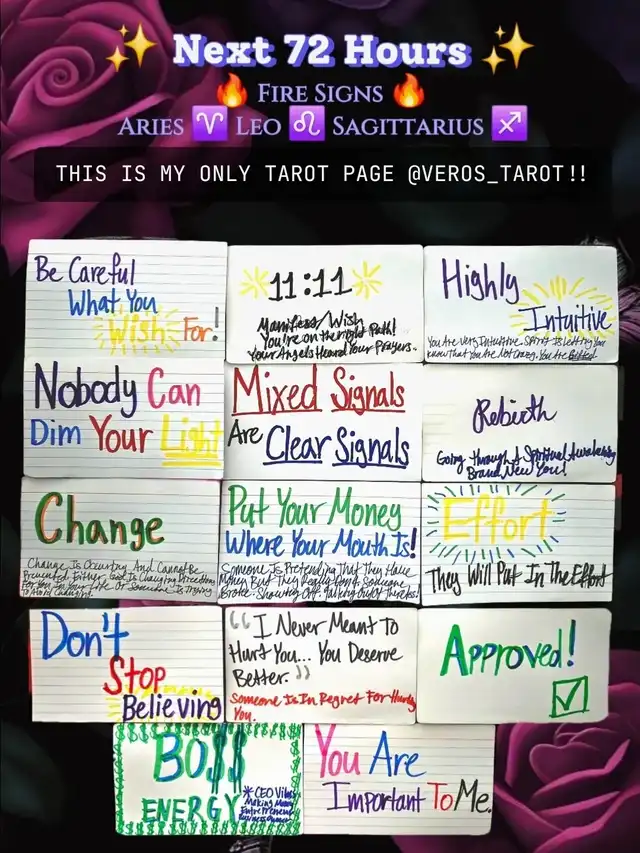 ✨ Next 72 Hours ✨
🔥 Fire Signs 🔥
Aries ♈ Leo ♌ Sagittarius ♐
THIS IS MY ONLY TAROT PAGE @VEROS_TAROT!!
Be Careful
What You
Wish For!
11:11
Manifest/Wish
You're on the right Path!
Your Angels Heard Your Prayers.
Highly
Intuitive
You Are Very Intuitive. Spirit Is Letting You
Know That You Are Not Crazy. You Are Gifted
Nobody Can
Dim Your Light
Mixed Signals
Are Clear Signals
Rebirth
Going Through A Spiritual Awakening
Brand New You!
Change
Change Is Occurring And Cannot Be
Prevented Either. God Is Changing Direction
For You In Your Life Or Someone Is Trying
To
Put Your Money
Where Your Mouth Is!
Someone Is Pretending That They Have
Money But They Really Don't. Someone
Broke. Showing Off. Talking Out Of
Effort
They Will Put In The Effort
Don't
Stop
Believing
“I Never Meant To
Hurt You... You Deserve
Better.”
Someone Is In Regret For Hurting
You.
Approved!
BO$$
ENERGY
* CEO Vibes
Making Money
Entrepreneur
Business Owner
You Are
Important To Me.